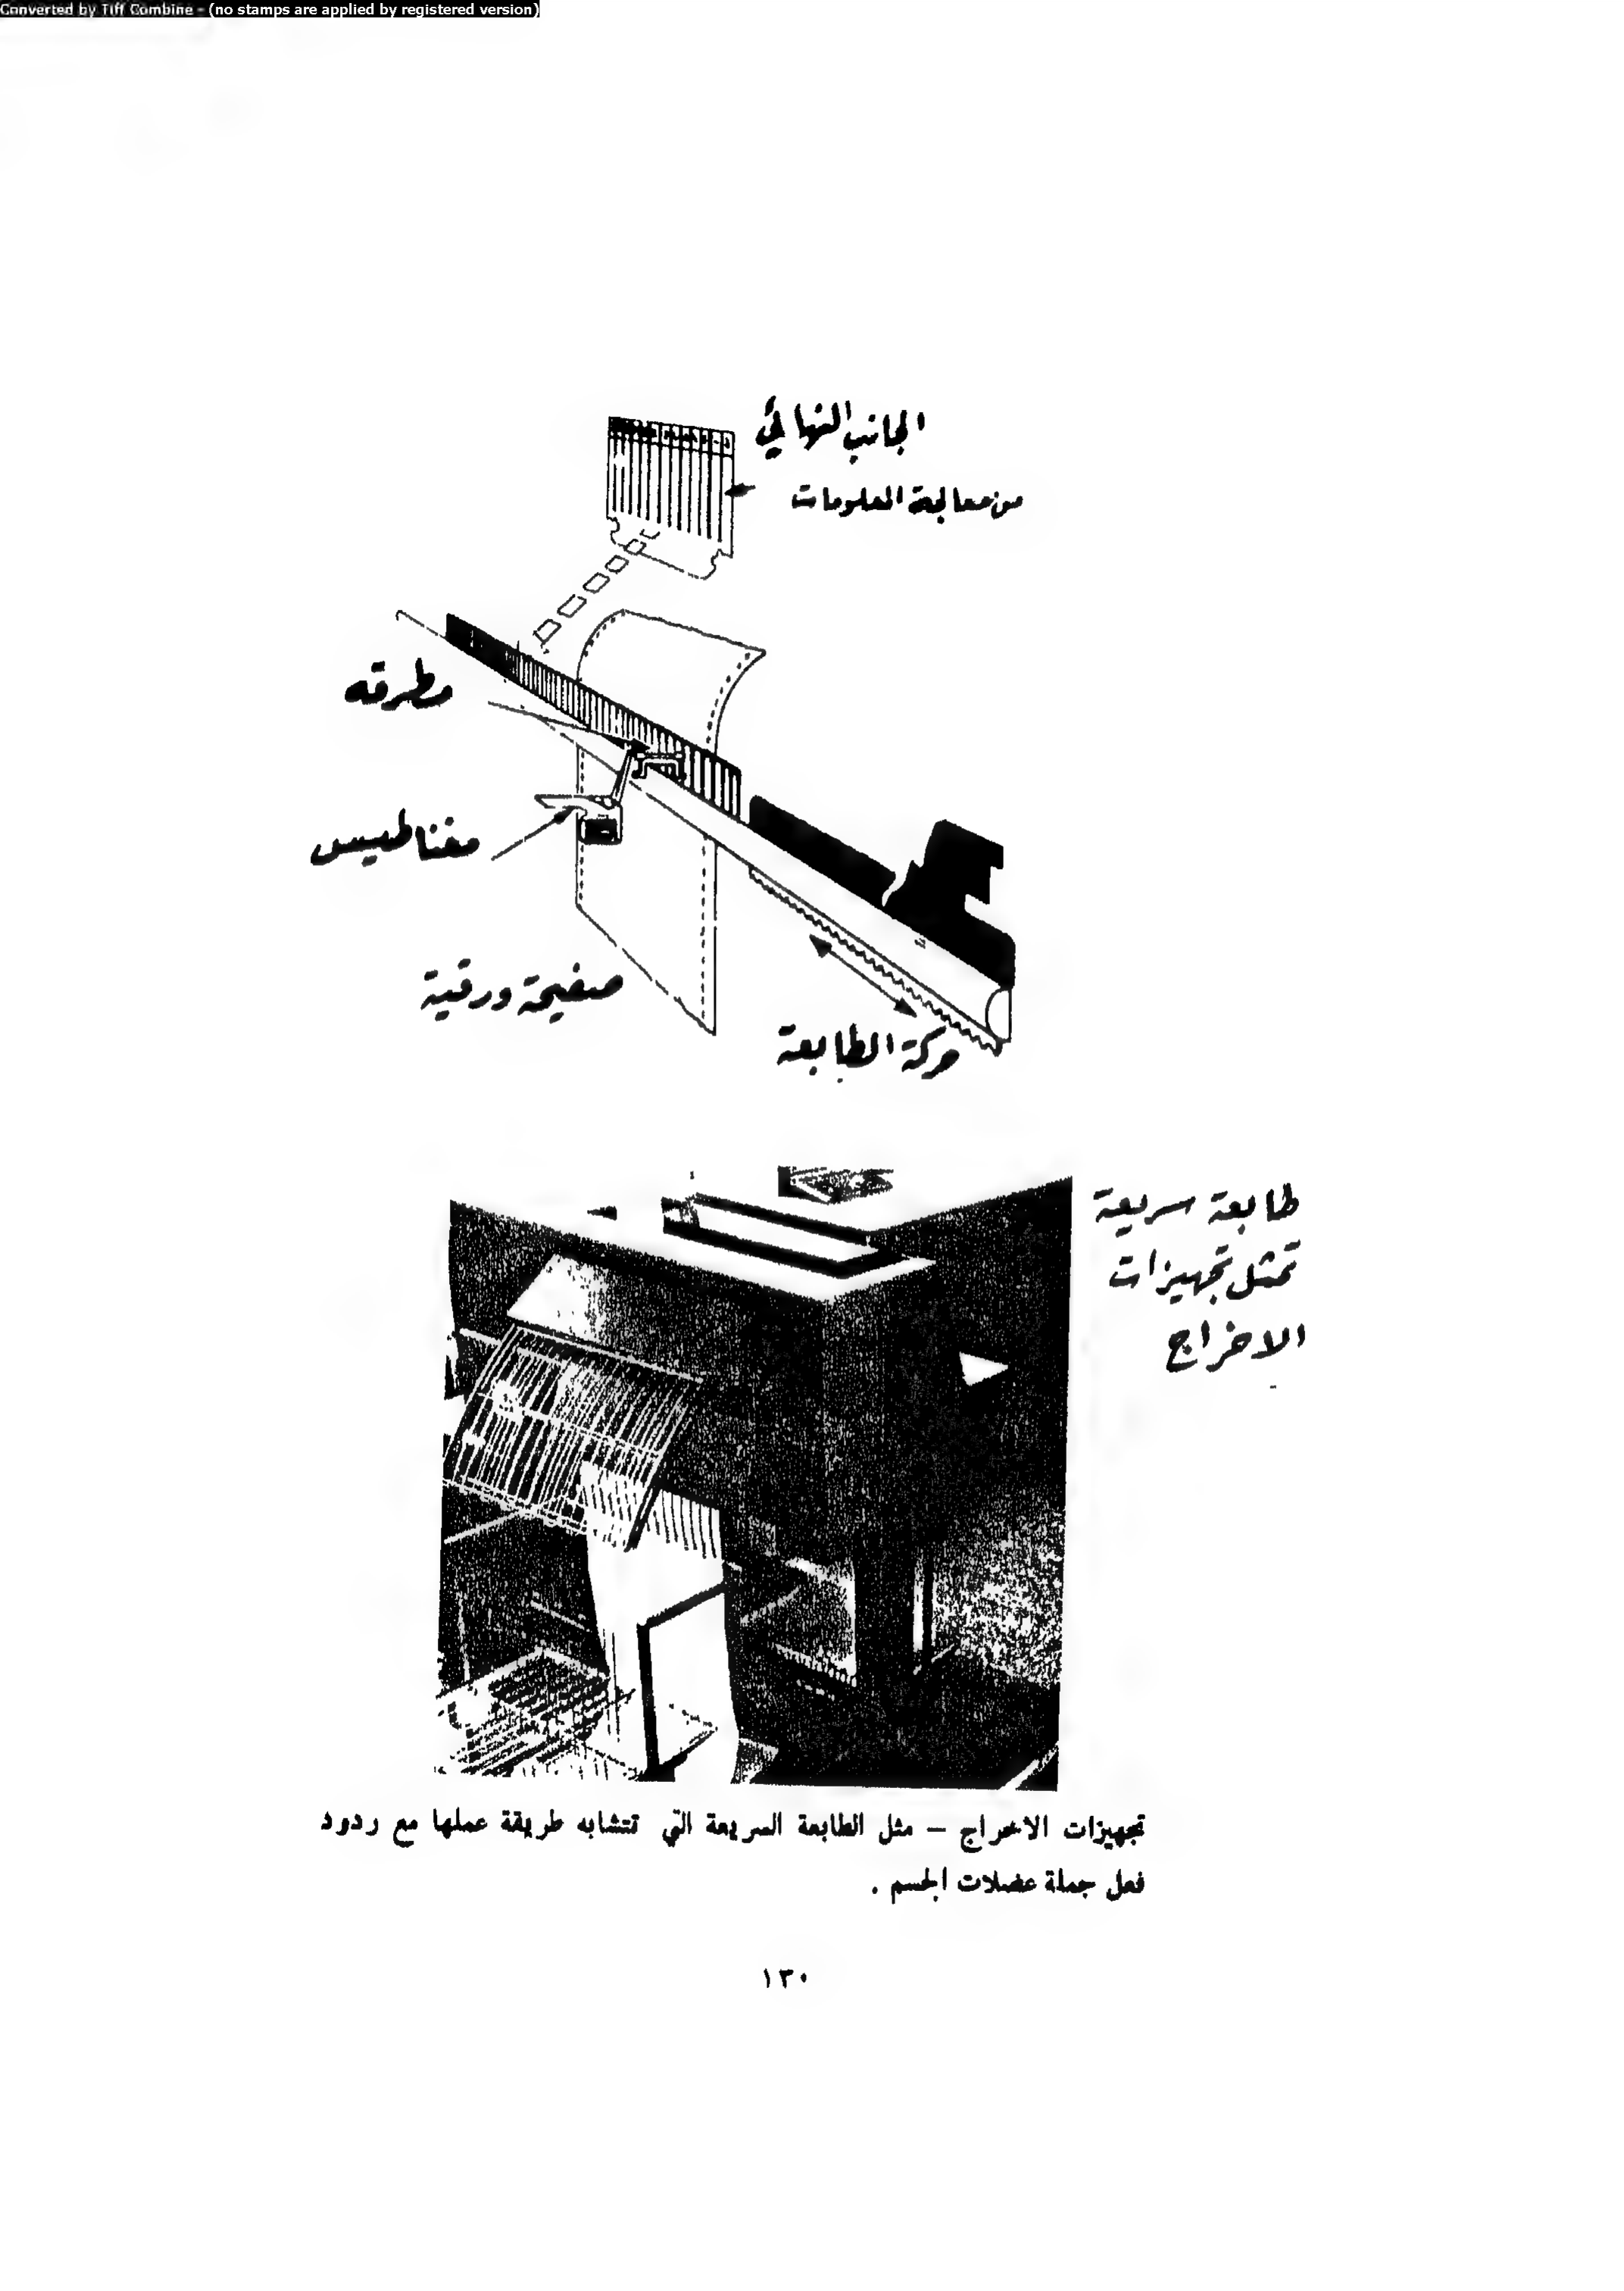 Converted by Tiff Combine - (no stamps are applied by registered version)
الجانب النهائي
من معالجة المعلومات
مطرقه
مغناطيس
صفيحة ورقية
حركة الطابعة
طابعة سريعة
تمثل تجهيزات
الاخراج
تجهيزات الاخراج – مثل الطابعة السريعة التي تتشابه طريقة عملها مع ردود
فعل جملة عضلات الجسم .
١٣٠